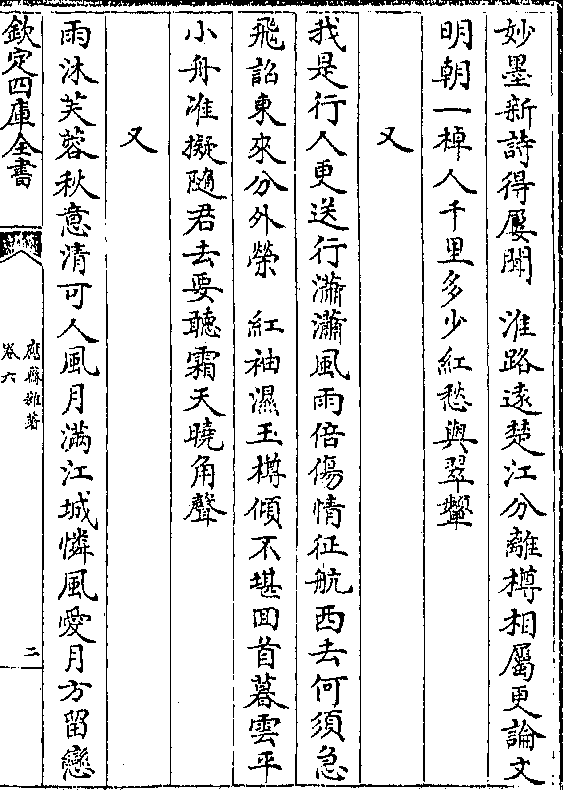 妙墨新詩得屢聞　淮路遠楚江分離樽相屬更論文
明朝一棹人千里多少紅愁與翠顰
又
我是行人更送行瀟瀟風雨倍傷情征航西去何須急
飛詔東來分外榮　紅袖濕玉樽傾不堪回首暮雲平
小舟准擬隨君去要聽霜天曉角聲
又
雨沐芙蓉秋意清可人風月滿江城憐風愛月方留戀
欽定四庫全書
卷六
二